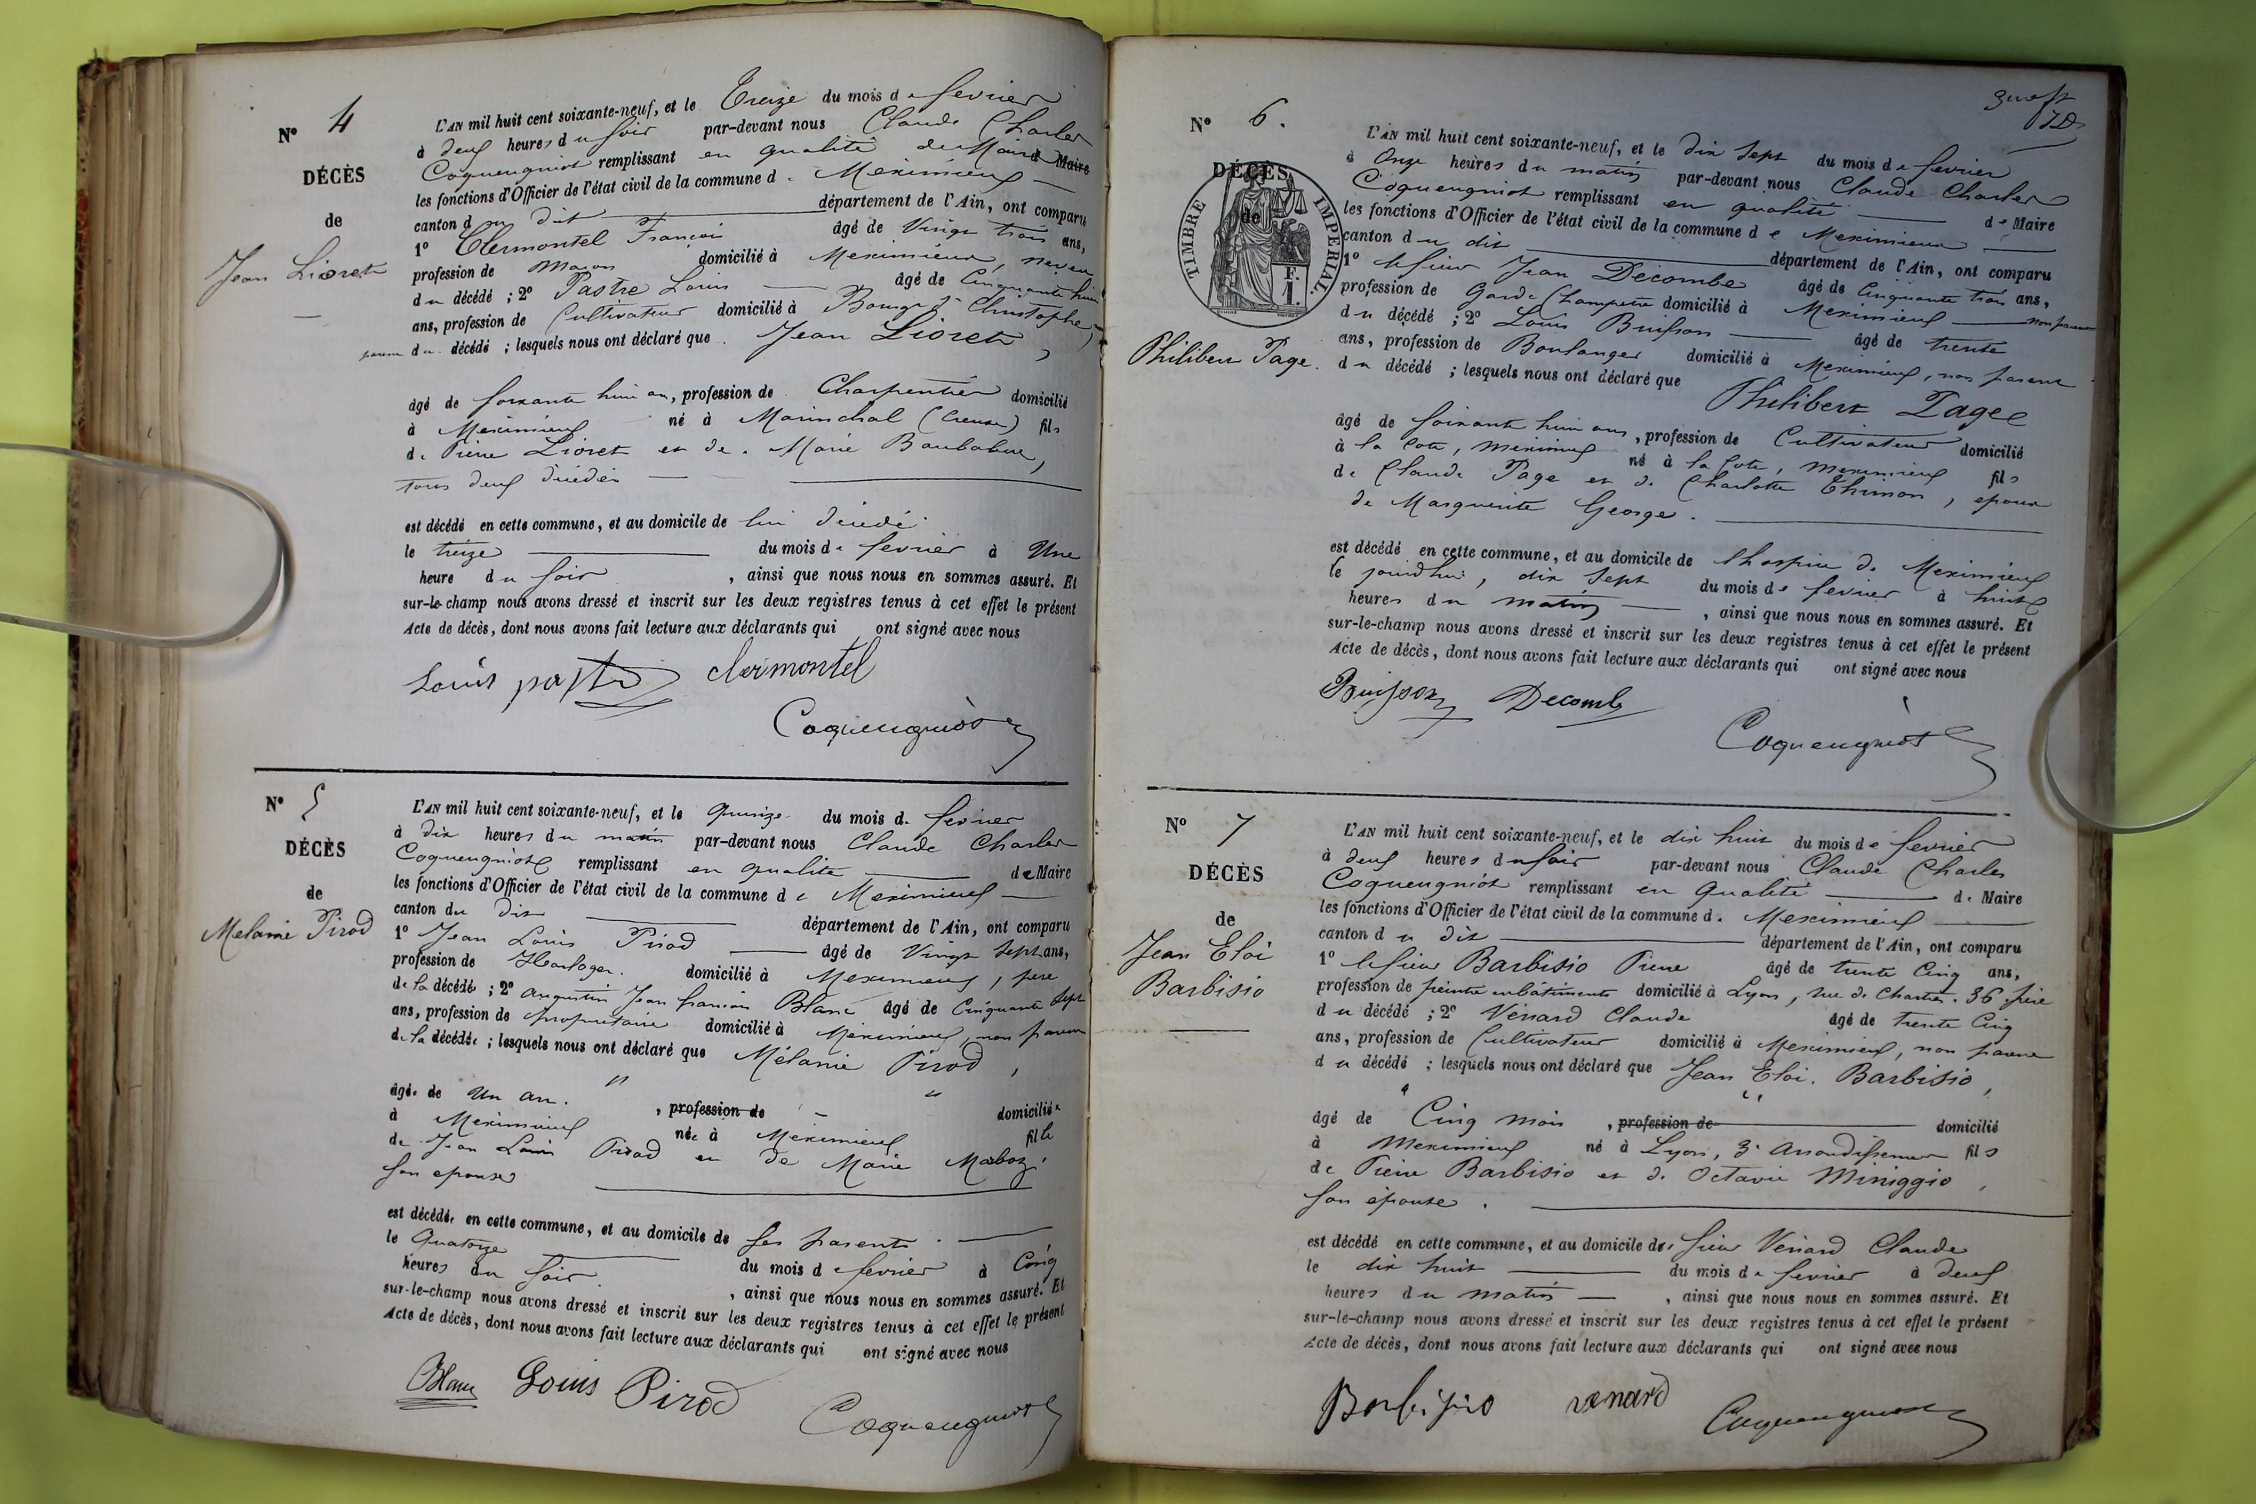 N° 4
DÉCÈS
de
Jean Lioret
L'AN mil huit cent soixante-neuf, et le Treize du mois de fevrier
à deux heures du soir par-devant nous Claude Charles
Coqueugniot remplissant en qualité de Maire d Maire
les fonctions d'Officier de l'état civil de la commune d. Meximieux
canton du dit département de l'Ain, ont comparu
1° Clermontel François âgé de Vingt trois ans,
profession de Maçon domicilié à Meximieux, neveu
du décédé ; 2° Pastre Louis âgé de Cinquante huit
ans, profession de Cultivateur domicilié à Bourg St Christophe, non
parent du décédé ; lesquels nous ont déclaré que Jean Lioret,
âgé de soixante huit ans, profession de Charpentier domicilié
à Meximieux né à (Creuse) fils
de Pierre Lioret et de Marie
tous deux décédés
est décédé en cette commune, et au domicile de lui décédé
le treize du mois de fevrier à Une
heure du soir , ainsi que nous nous en sommes assuré. Et
sur-le-champ nous avons dressé et inscrit sur les deux registres tenus à cet effet le présent
Acte de décès, dont nous avons fait lecture aux déclarants qui ont signé avec nous
Louis pastre clermontel
Coqueugniot
N° 5
DÉCÈS
de
Melanie Pirod
L'AN mil huit cent soixante-neuf, et le Quinze du mois de fevrier
à dix heures du matin par-devant nous Claude Charles
Coqueugniot remplissant en qualité de Maire
les fonctions d'Officier de l'état civil de la commune de Meximieux
canton du dit département de l'Ain, ont comparu
1° Jean Louis Pirod âgé de Vingt sept ans,
profession de Horloger domicilié à Meximieux, père
de la décédée ; 2° Augustin Jean françois Blanc âgé de Cinquante sept
ans, profession de propriétaire domicilié à Meximieux, non parent
de la décédée ; lesquels nous ont déclaré que Mélanie Pirod,
âgée de Un an. " , profession de " domiciliée
à Meximieux née à Meximieux fille
de Jean Louis Pirod et de Marie
son epouse
est décédée en cette commune, et au domicile de ses parents
le Quatorze du mois de fevrier à Cinq
heures du soir , ainsi que nous nous en sommes assuré. Et
sur-le-champ nous avons dressé et inscrit sur les deux registres tenus à cet effet le présent
Acte de décès, dont nous avons fait lecture aux déclarants qui ont signé avec nous
Blanc Louis Pirod
Coqueugniot
N° 6.
DÉCÈS
de
TIMBRE IMPERIAL.
F.
1.
Philibert Page.
L'AN mil huit cent soixante-neuf, et le dix sept du mois de fevrier
à Onze heures du matin par-devant nous Claude Charles
Coqueugniot remplissant en qualité de Maire
les fonctions d'Officier de l'état civil de la commune de Meximieux
canton du dit département de l'Ain, ont comparu
1° le sieur Jean Decombe âgé de Cinquante trois ans,
profession de Garde Champetre domicilié à Meximieux non parent
du décédé ; 2° Louis Buisson âgé de trente
ans, profession de Boulanger domicilié à Meximieux, non parent
du décédé ; lesquels nous ont déclaré que Philibert Page
âgé de soixante huit ans, profession de Cultivateur domicilié
à la Cote, Meximieux né à la Cote, Meximieux fils
de Claude Page et de Charlotte Thimon, epoux
de Marguerite George.
est décédé en cette commune, et au domicile de l'hospice de Meximieux
le jourdhui, dix sept du mois de fevrier à huit
heures du matin , ainsi que nous nous en sommes assuré. Et
sur-le-champ nous avons dressé et inscrit sur les deux registres tenus à cet effet le présent
Acte de décès, dont nous avons fait lecture aux déclarants qui ont signé avec nous
Buisson Decombe
Coqueugniot
N° 7
DÉCÈS
de
Jean Eloi
Barbisio
L'AN mil huit cent soixante-neuf, et le dix huit du mois de fevrier
à deux heures du soir par-devant nous Claude Charles
Coqueugniot remplissant en Qualité de Maire
les fonctions d'Officier de l'état civil de la commune d. Meximieux
canton du dit département de l'Ain, ont comparu
1° le sieur Barbisio Pierre âgé de trente Cinq ans,
profession de peintre en bâtiments domicilié à Lyon, rue de Chartres. 36. père
du décédé ; 2° Vénard Claude âgé de trente Cinq
ans, profession de Cultivateur domicilié à Meximieux, non parent
du décédé ; lesquels nous ont déclaré que Jean Eloi. Barbisio,
âgé de Cinq mois , profession de domicilié
à Meximieux né à Lyon, 3e Arrondissement fils
de Pierre Barbisio et de Octavie Miniggio,
son épouse.
est décédé en cette commune, et au domicile de sieur Vénard Claude
le dix huit du mois de fevrier à deux
heures du matin , ainsi que nous nous en sommes assuré. Et
sur-le-champ nous avons dressé et inscrit sur les deux registres tenus à cet effet le présent
Acte de décès, dont nous avons fait lecture aux déclarants qui ont signé avec nous
Barbisio venard Coqueugniot